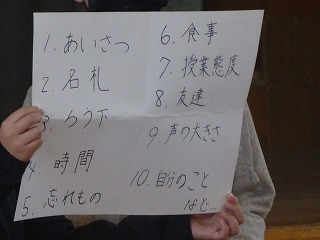 1. あいさつ
2. 名札
3. ろう下
4. 時間
5. 忘れもの
6. 食事
7. 授業態度
8. 友達
9. 声の大きさ
10. 自分のこと
など…